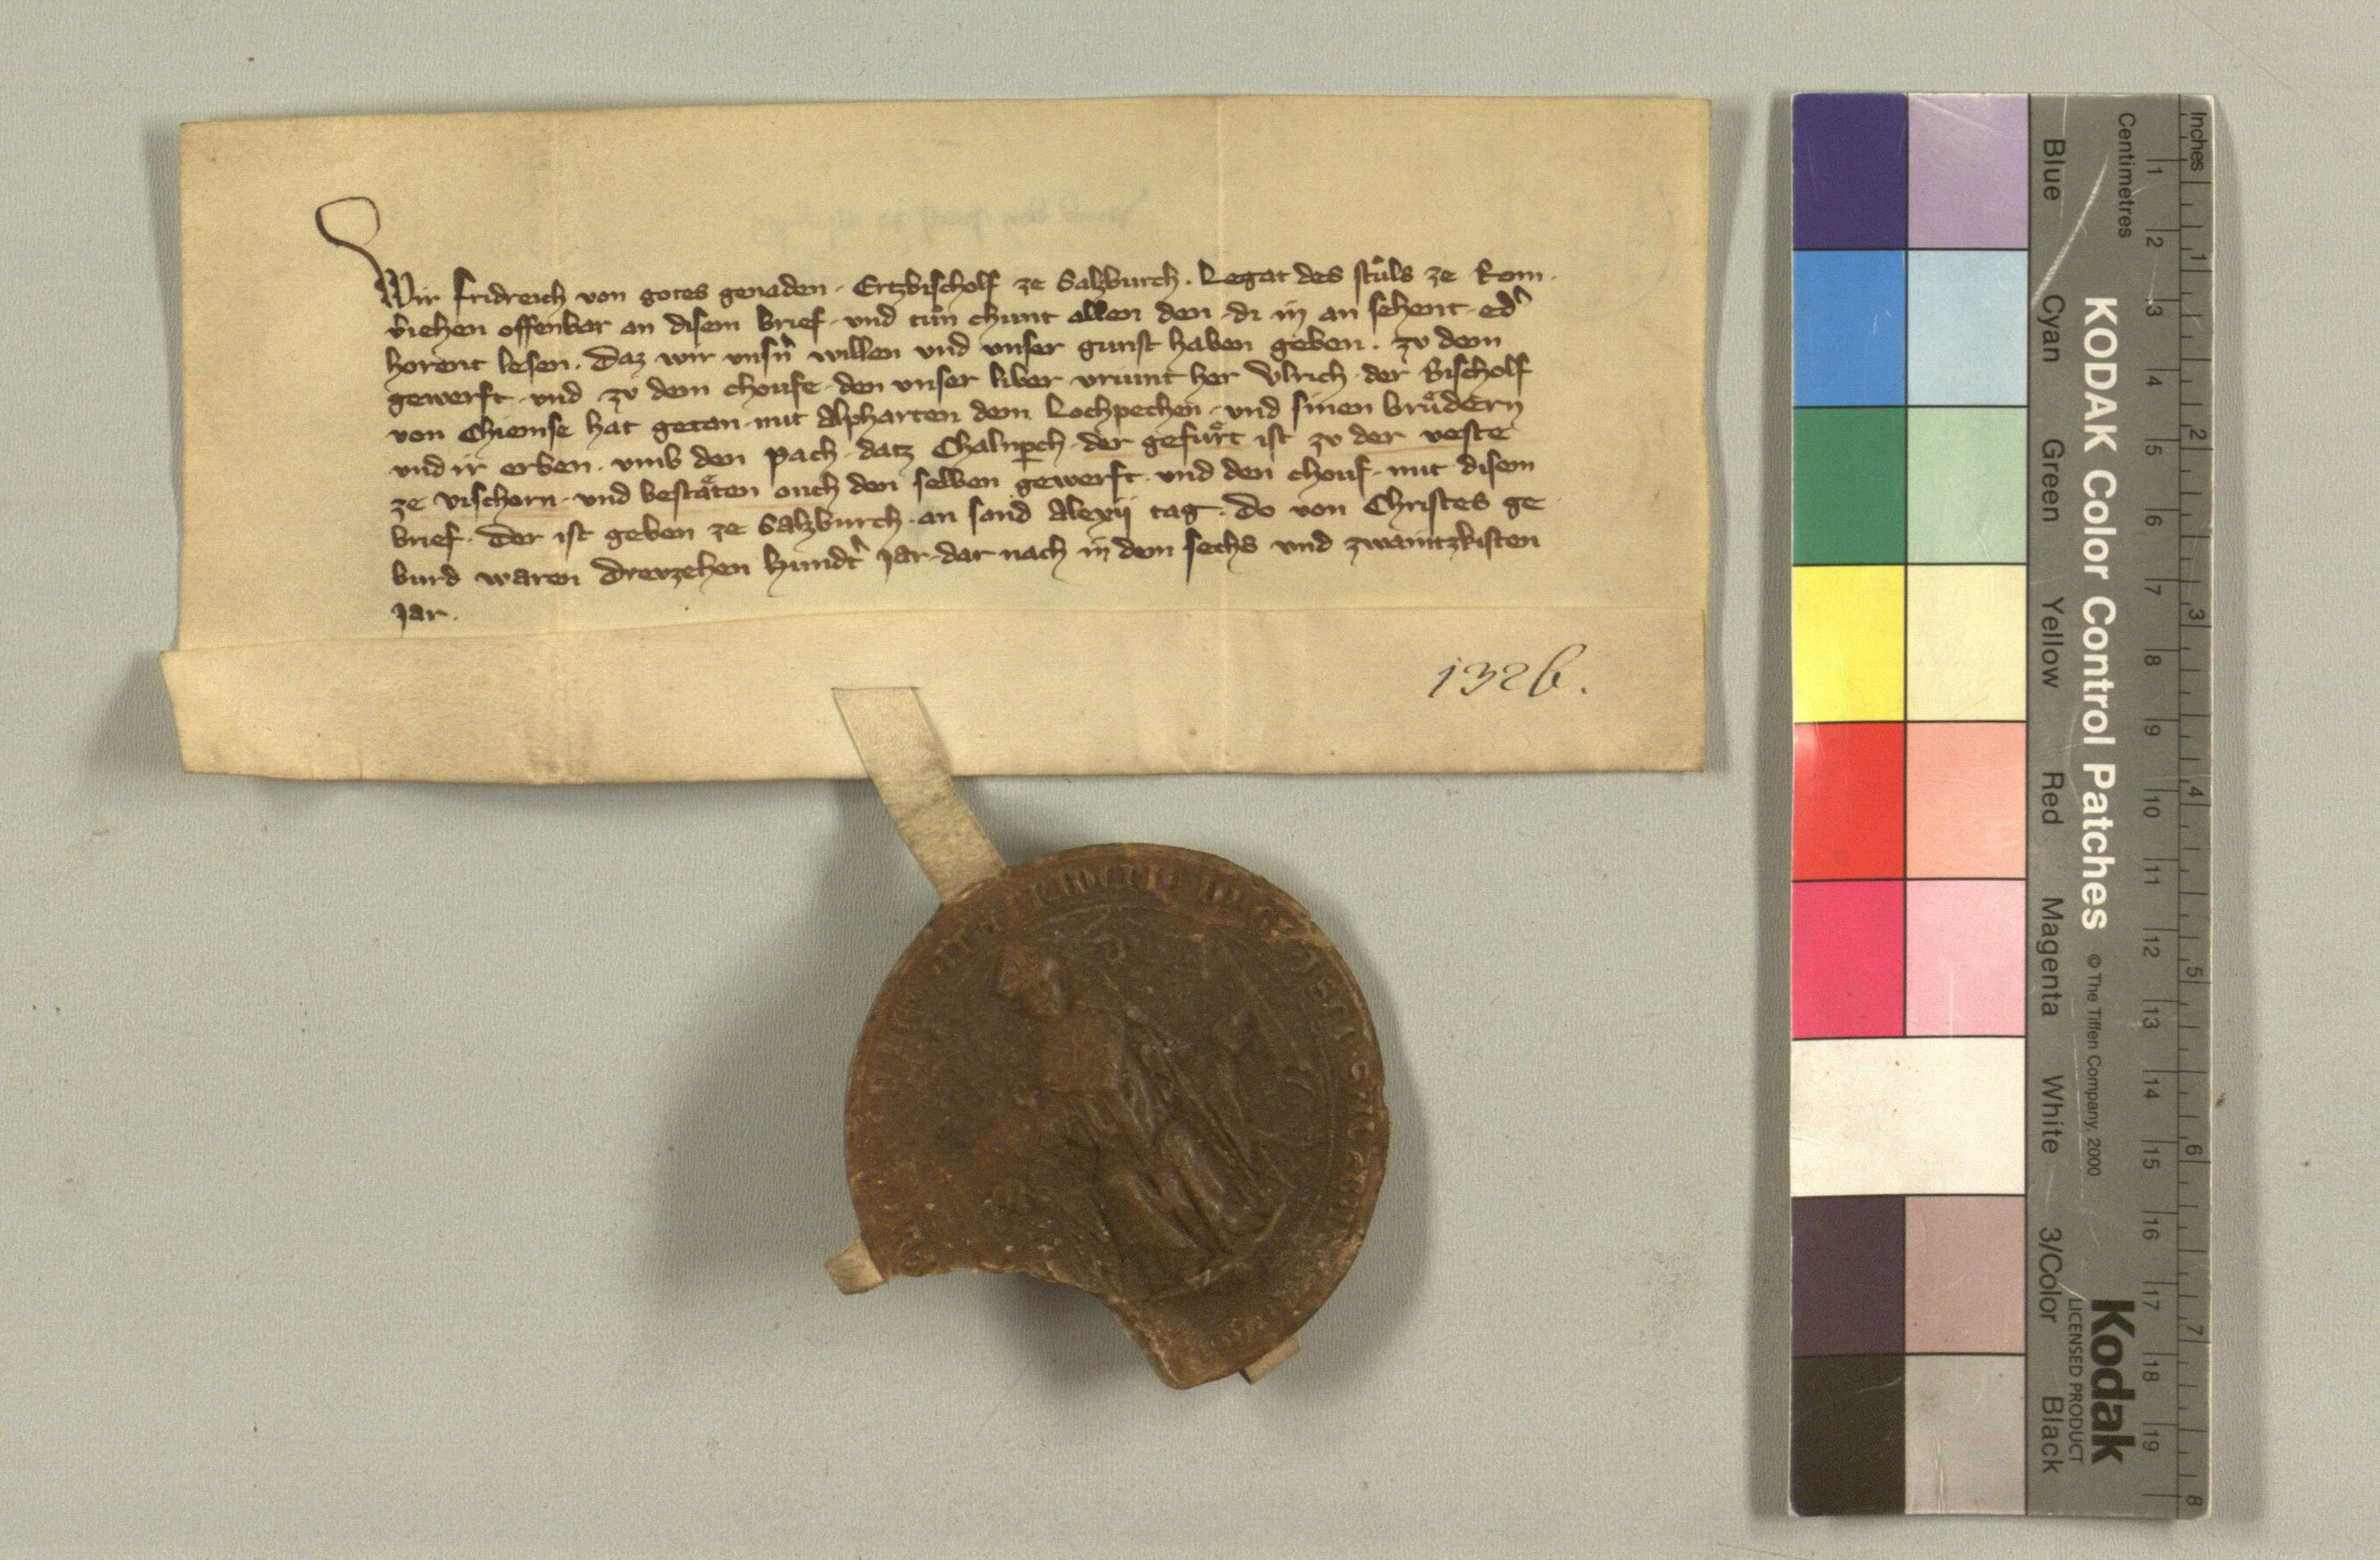 Wir fridreich von gotes genaden · Ertzbischolf ze Salzburch · Legat des stůls ze Rom ·
v̉iehen offenbar an disem brief · und tůn chunt allen den · di in an sehent · ed̉
horent lesen · daz wir unsn̉ willen und unser gunst haben geben · zv dem
gewerft · und zv dem choufe · den unser liber vriunt her Ulrich · der Bischolf
von Chiemse hat getan · mit Alpharten dem Lochpechen · und sinen brůdern
und ir erben · umb den pach · datz der gefůrt ist zv der veste
ze vischorn · und bestäten ouch den selben gewerft · und den chouf · mit disem
brief · Der ist geben ze Salzburch · an sand Alexij tag · Do von Christes ge
burd waren Drevzehen hundt̉ jar · dar nach in dem sechs und zwaintzkisten
jar ·
1326.
KODAK Color Control Patches © The Tiffen Company, 2000
Kodak
LICENSED PRODUCT
Blue Cyan Green Yellow Red Magenta White 3/Color Black
Centimetres 1 2 3 4 5 6 7 8 9 10 11 12 13 14 15 16 17 18 19
Inches 1 2 3 4 5 6 7 8